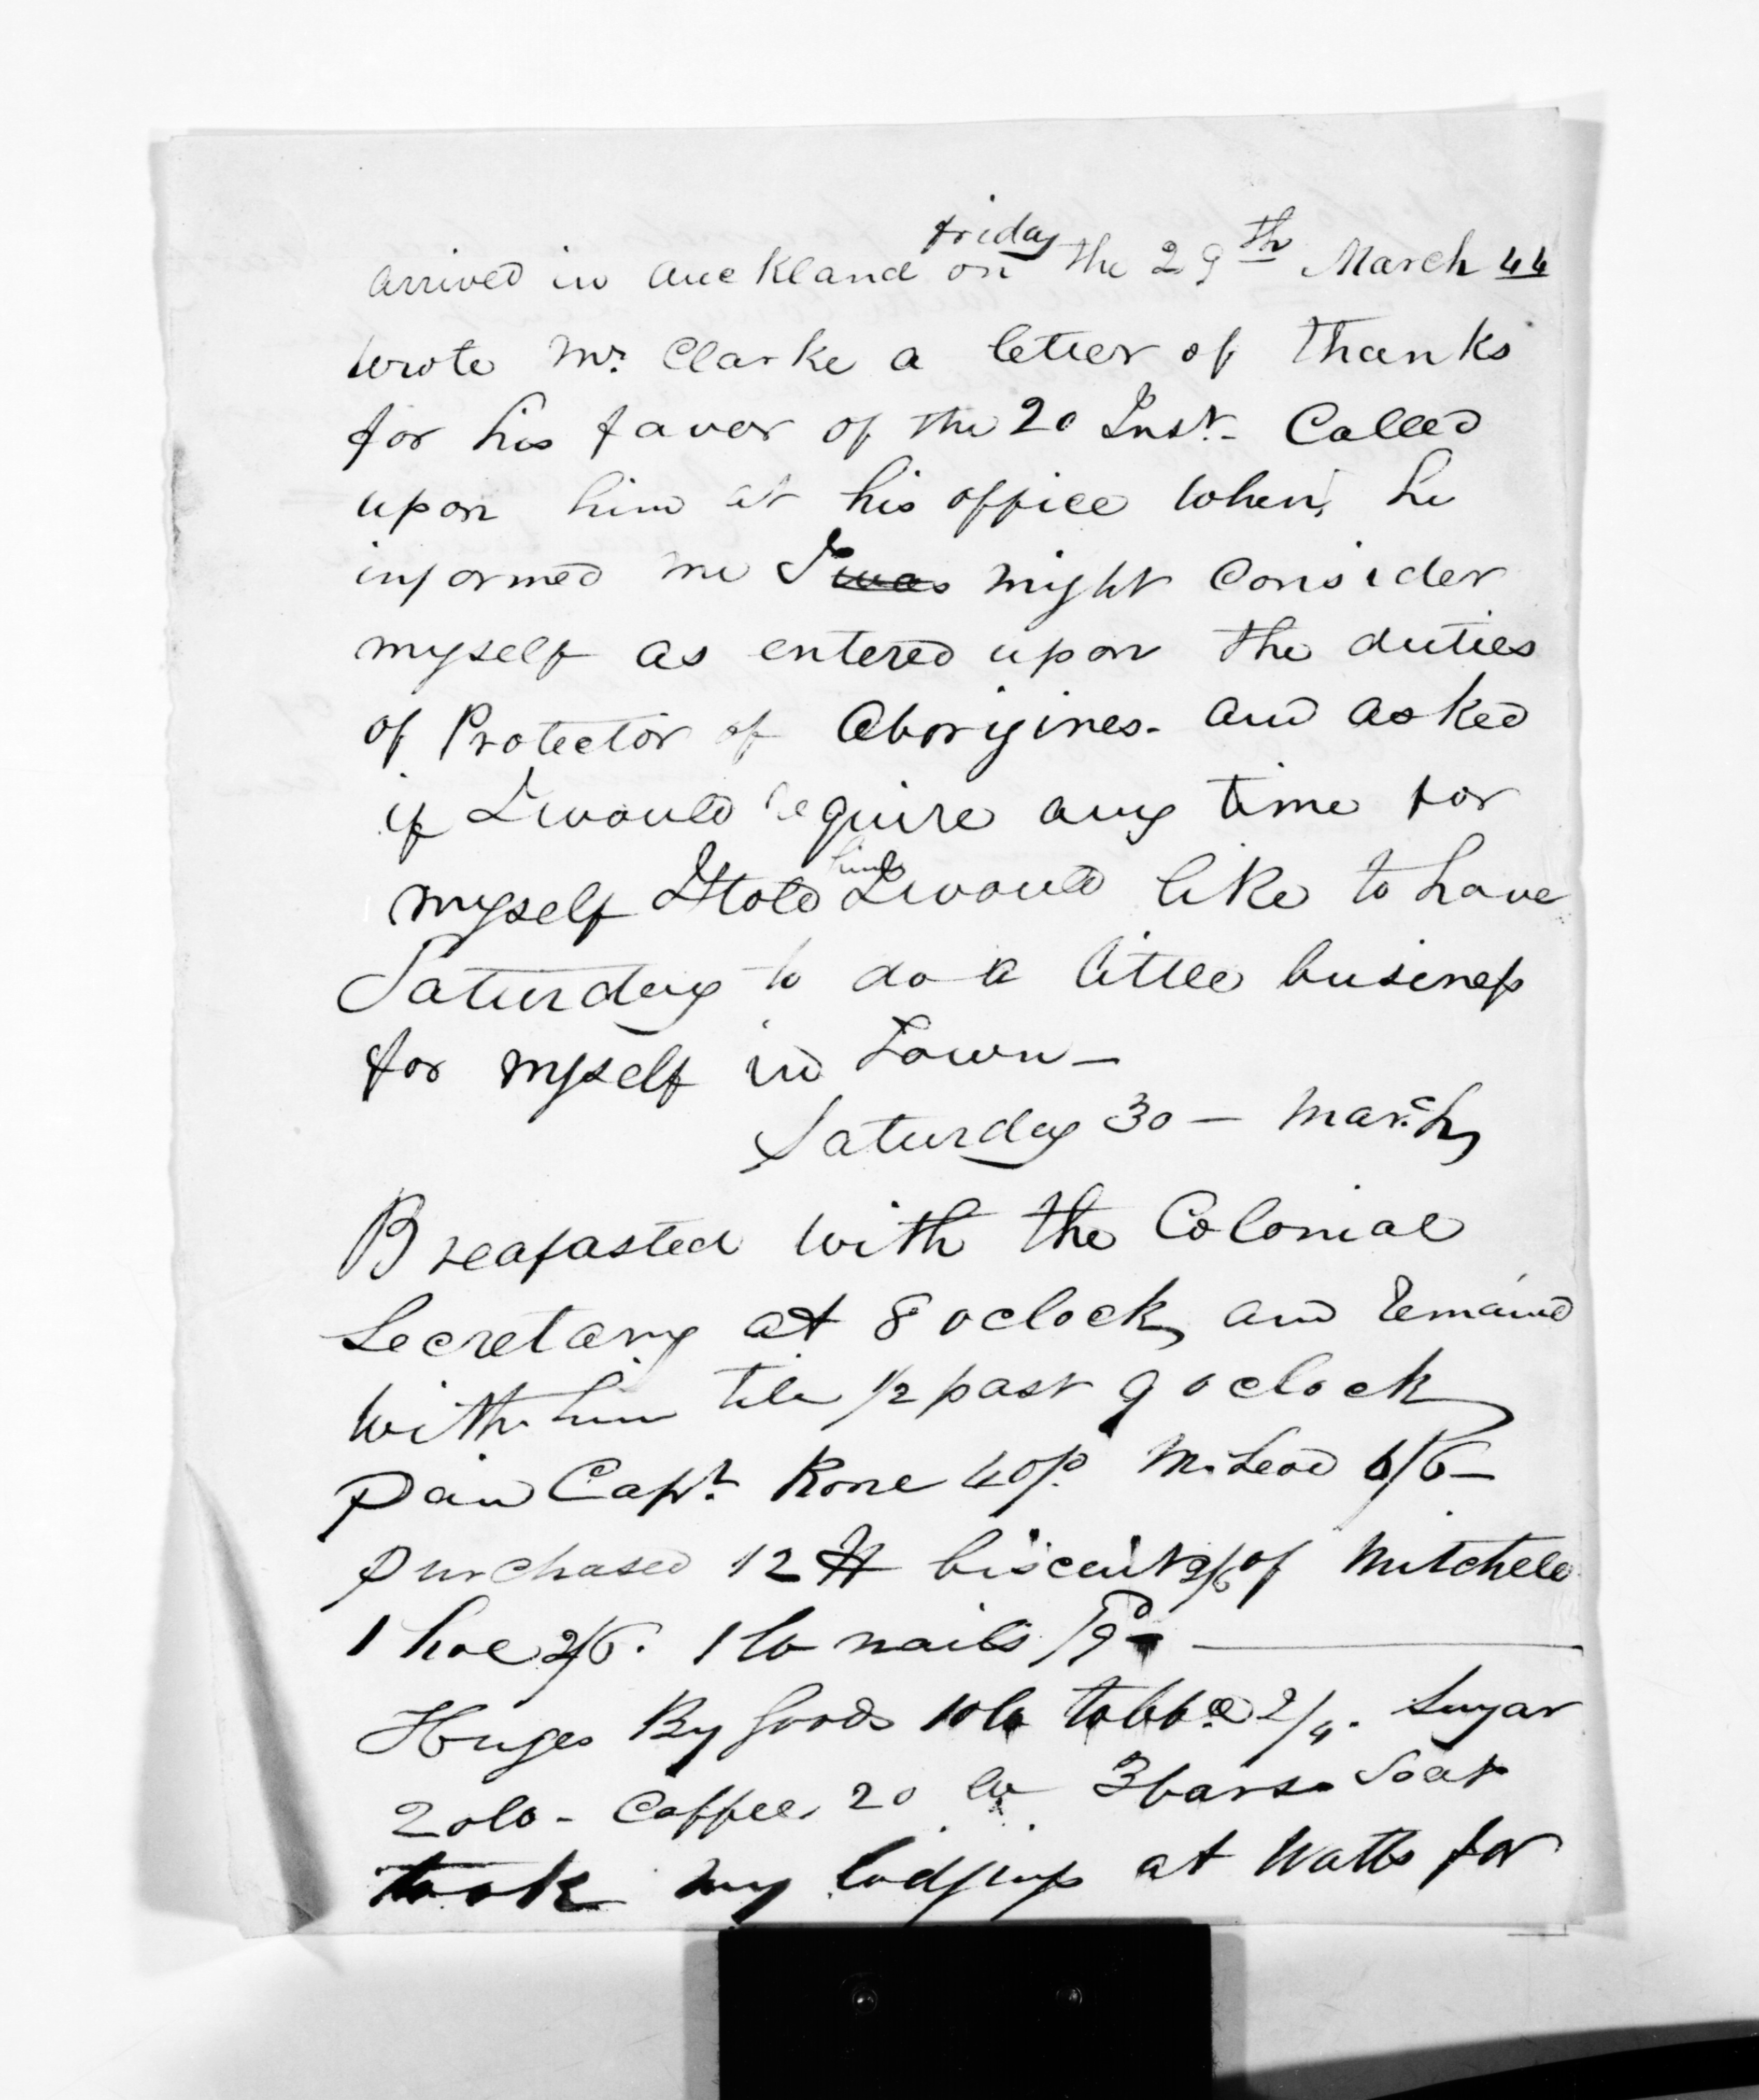 arrived in Auckland on friday the 29th March 44
wrote Mr. Clarke a letter of thanks
for his favor of the 20 Inst. Called
upon him at his office when, he
informed me I was might consider
myself as entered upon the duties
of Protector of Aborigines. and asked
if I would require any time for
myself I told him I would like to have
Saturday to do a little business
for myself in Town -
Saturday 30 - March
Breafasted with the Colonial
Secretary at 8 oclock, and remained
with him till 1/2 past 9 oclock
Paid Capt. 40/. McLeod 6/6 -
purchased 12 lb biscuits of Mitchell
1 hoe 2/6. 1 lb nails /9d -
By goods 10 lb tobbco 2/4. Sugar
20 lb - Coffee, 20 lb 3 bars Soap
took my lodgings at Watts for